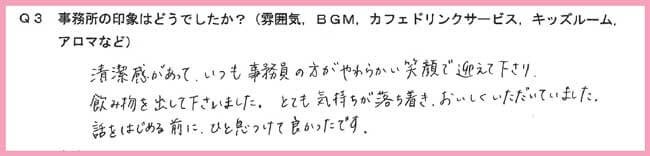 Q3 事務所の印象はどうでしたか？（雰囲気，BGM，カフェドリンクサービス，キッズルーム，
アロマなど）
清潔感があって、いつも事務員の方がやわらかい笑顔で迎えて下さり、
飲み物を出して下さいました。とても気持ちが落ち着き、おいしくいただいていました。
話をはじめる前に、ひと息つけて良かったです。